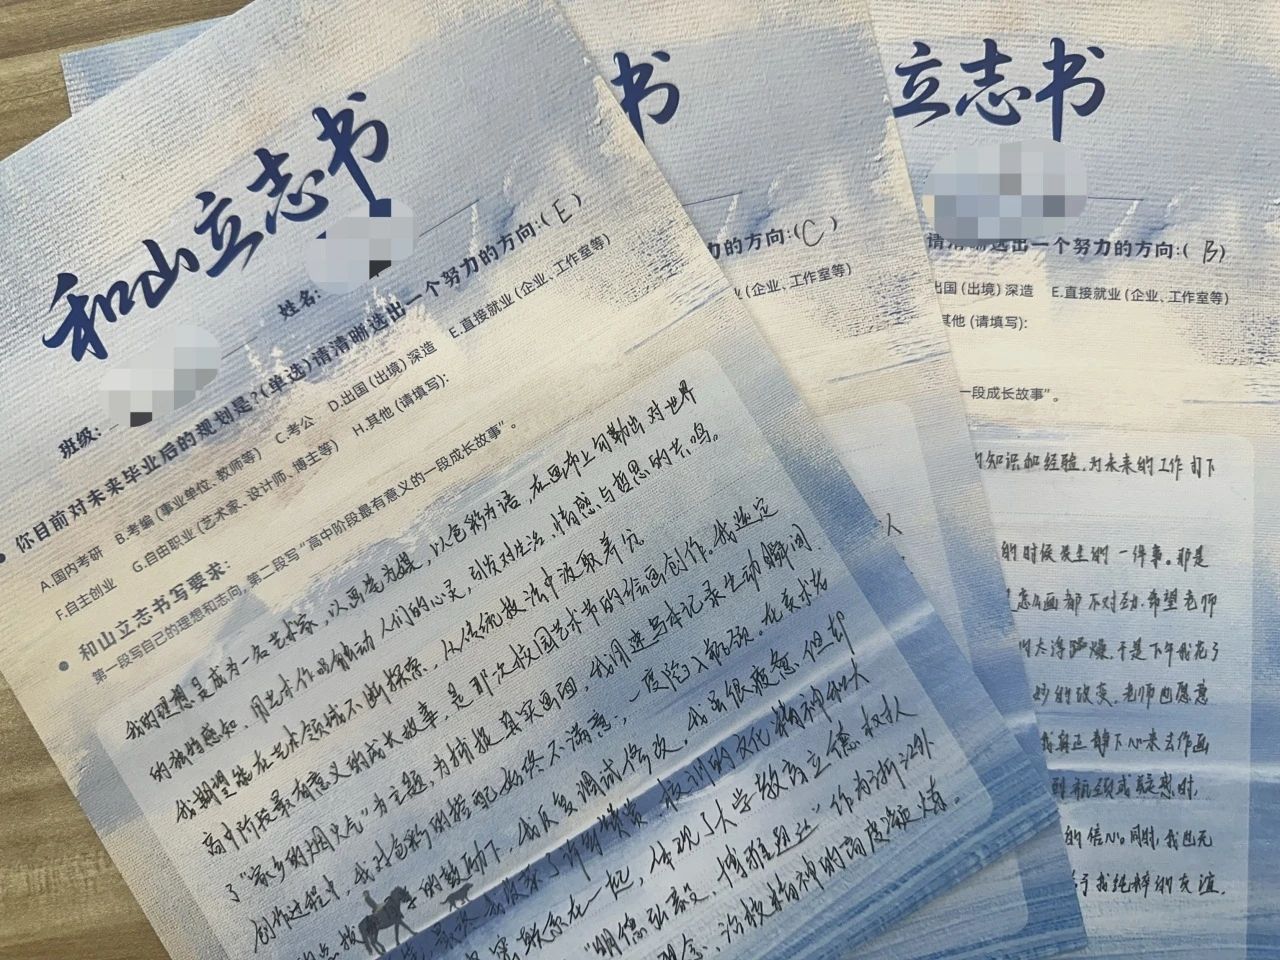 和山立志书
班级:
姓名:
你目前对未来毕业后的规划是?(单选)请清晰选出一个努力的方向:( E )
A.国内考研 B.考编(事业单位、教师等) C.考公 D.出国(出境)深造 E.直接就业(企业、工作室等)
F.自主创业 G.自由职业(艺术家、设计师、博主等) H.其他(请填写):
和山立志书写要求:
第一段写自己的理想和志向,第二段写“高中阶段最有意义的一段成长故事”。
我的理想是成为一名艺术家,以画笔为媒,以色彩为语,在画布上勾勒出对世界
的独特感知、用艺术作品触动人们的心灵,引发对生活、情感与哲思的共鸣。
我期望能在艺术领域不断探索,从传统技法中汲取养分
高中阶段最有意义的成长故事,是那次校园艺术节的绘画创作。我选定
了“家乡的烟火气”为主题,为捕捉真实画面,我用速写本记录生动瞬间.
创作过程中,我对色彩的搭配始终不满意,一度陷入瓶颈。在美术老
的鼓励下,我反复调试修改,我虽很疲惫,但却
收获了许多赞赏 校训的文化精神和大
联系在一起,体现了大学教育立德
“明德弘毅、博雅通达”作为浙江外
治校精神的高度凝炼。
书
力的方向:( C )
(企业、工作室等)
立志书
请清晰选出一个努力的方向:( B )
出国(出境)深造 E.直接就业(企业、工作室等)
其他(请填写):
一段成长故事”。
知识和经验,为未来的工作打下
的时候发生的一件事。那是
怎么画都不对劲.希望老师
太浮躁燥,于是下午我花了
妙的改变。老师也愿意
我真正静下心来去作画
瓶颈或疑惑时,
的信心。同时,我也无
了我纯粹的友谊.